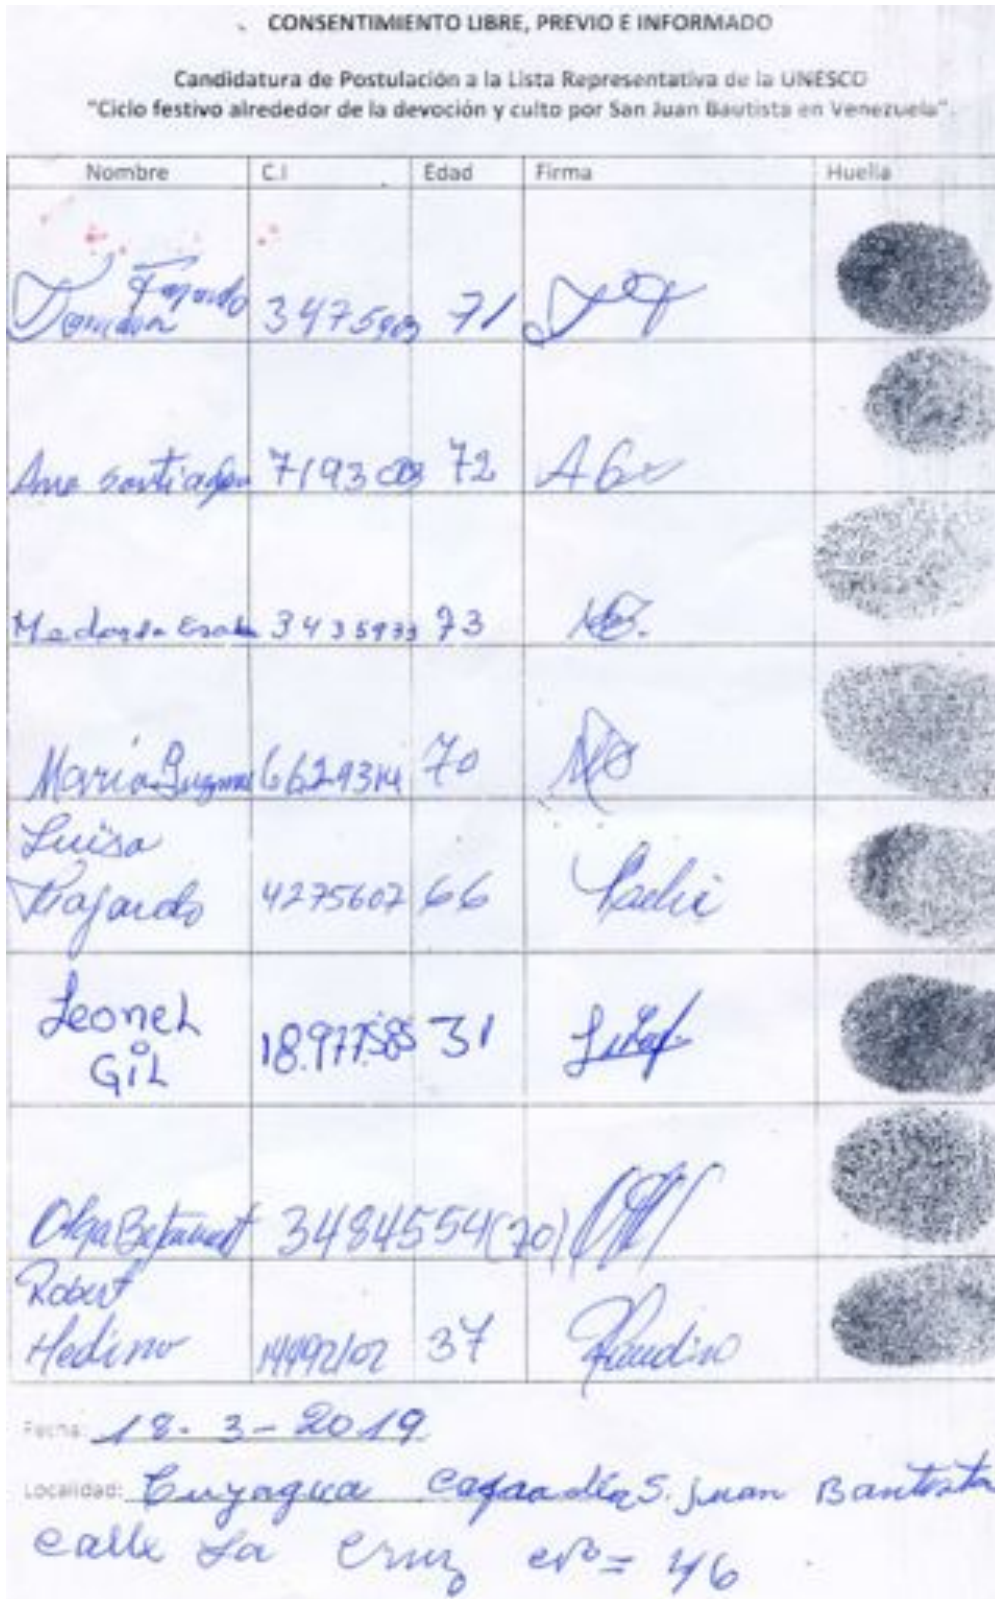 CONSENTIMIENTO LIBRE, PREVIO E INFORMADO
Candidatura de Postulación a la Lista Representativa de la UNESCO
"Ciclo festivo alrededor de la devoción y culto por San Juan Bautista en Venezuela".
Nombre C.I Edad Firma Huella
Fajardo
3475 71
Ana Santiago 7193 72
3435933 73
María Guzman 6629314 70
Luisa
Fajardo 4275607 66
Leonel
Gil 18.977.585 31
Olga 3484554 (70)
Robert
Medino 14492102 37
Fecha: 18-3-2019
Localidad: Cuyagua S. Juan Bautista
calle La Cruz Nº= 46